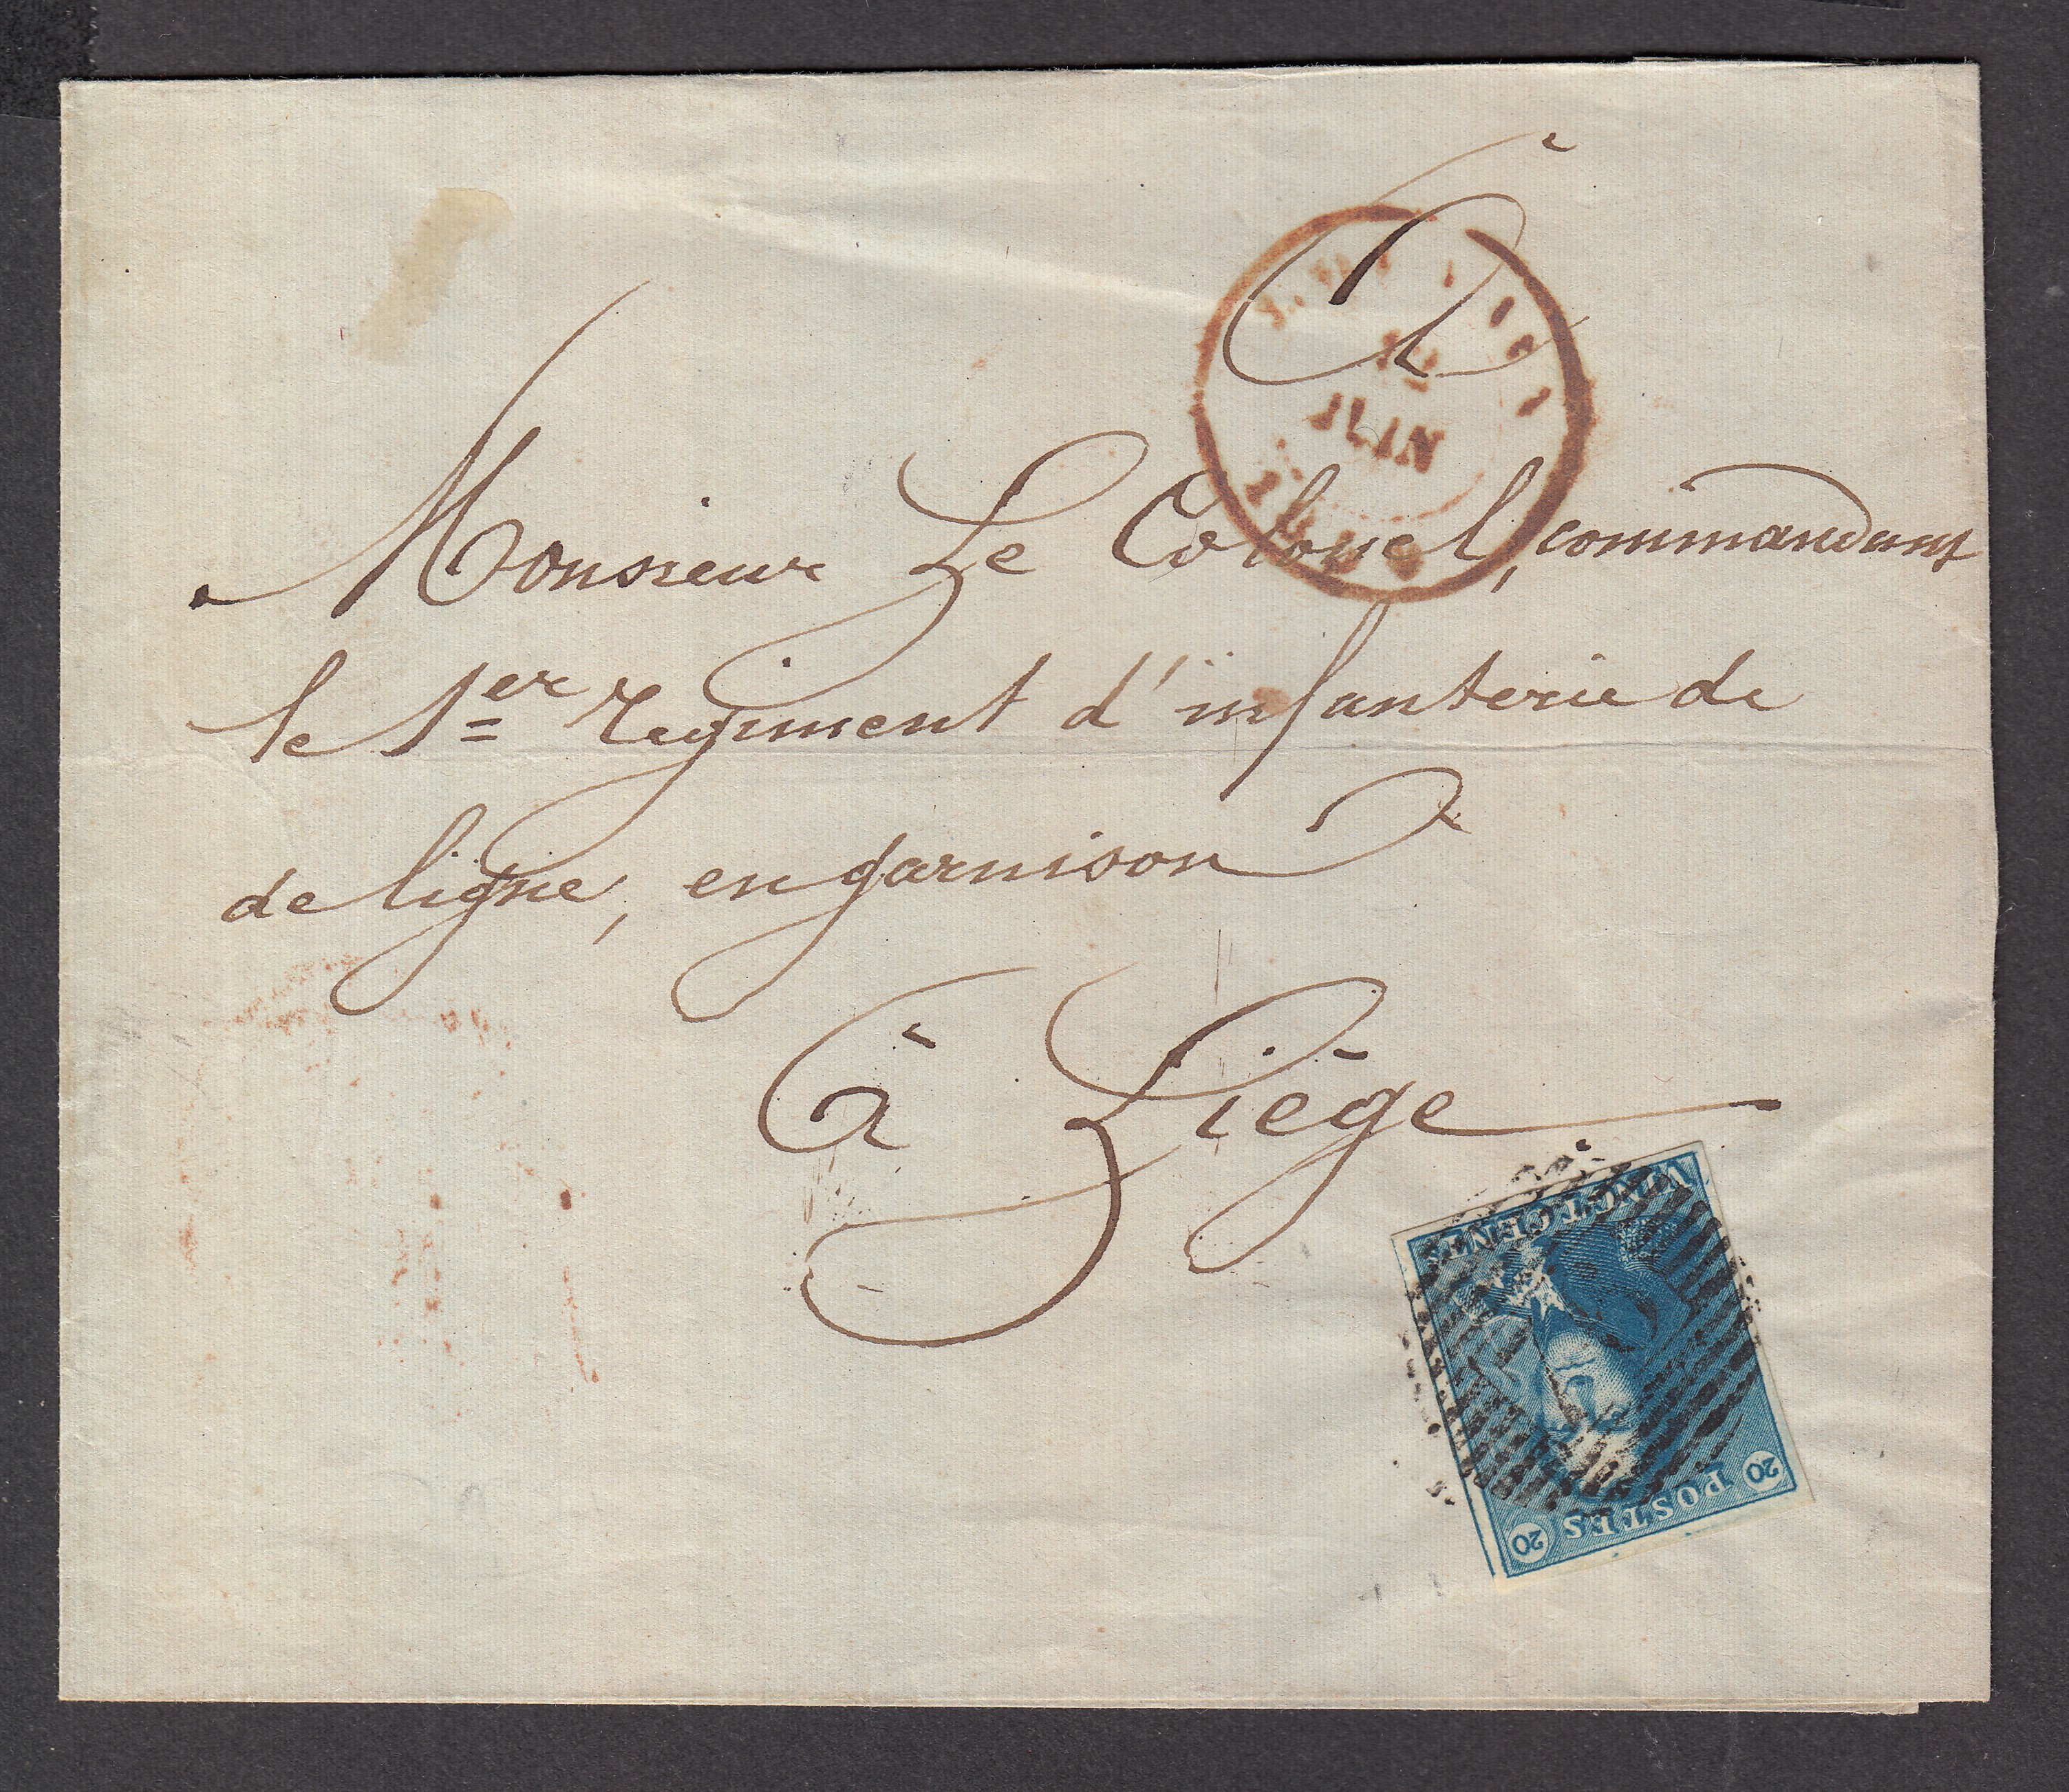 À
JUIN
Monsieur Le Colonel, commandant
le 1er régiment d'infanterie de
de ligne, en garnison
à Liège
VINGT CENTS
POSTES
20
20